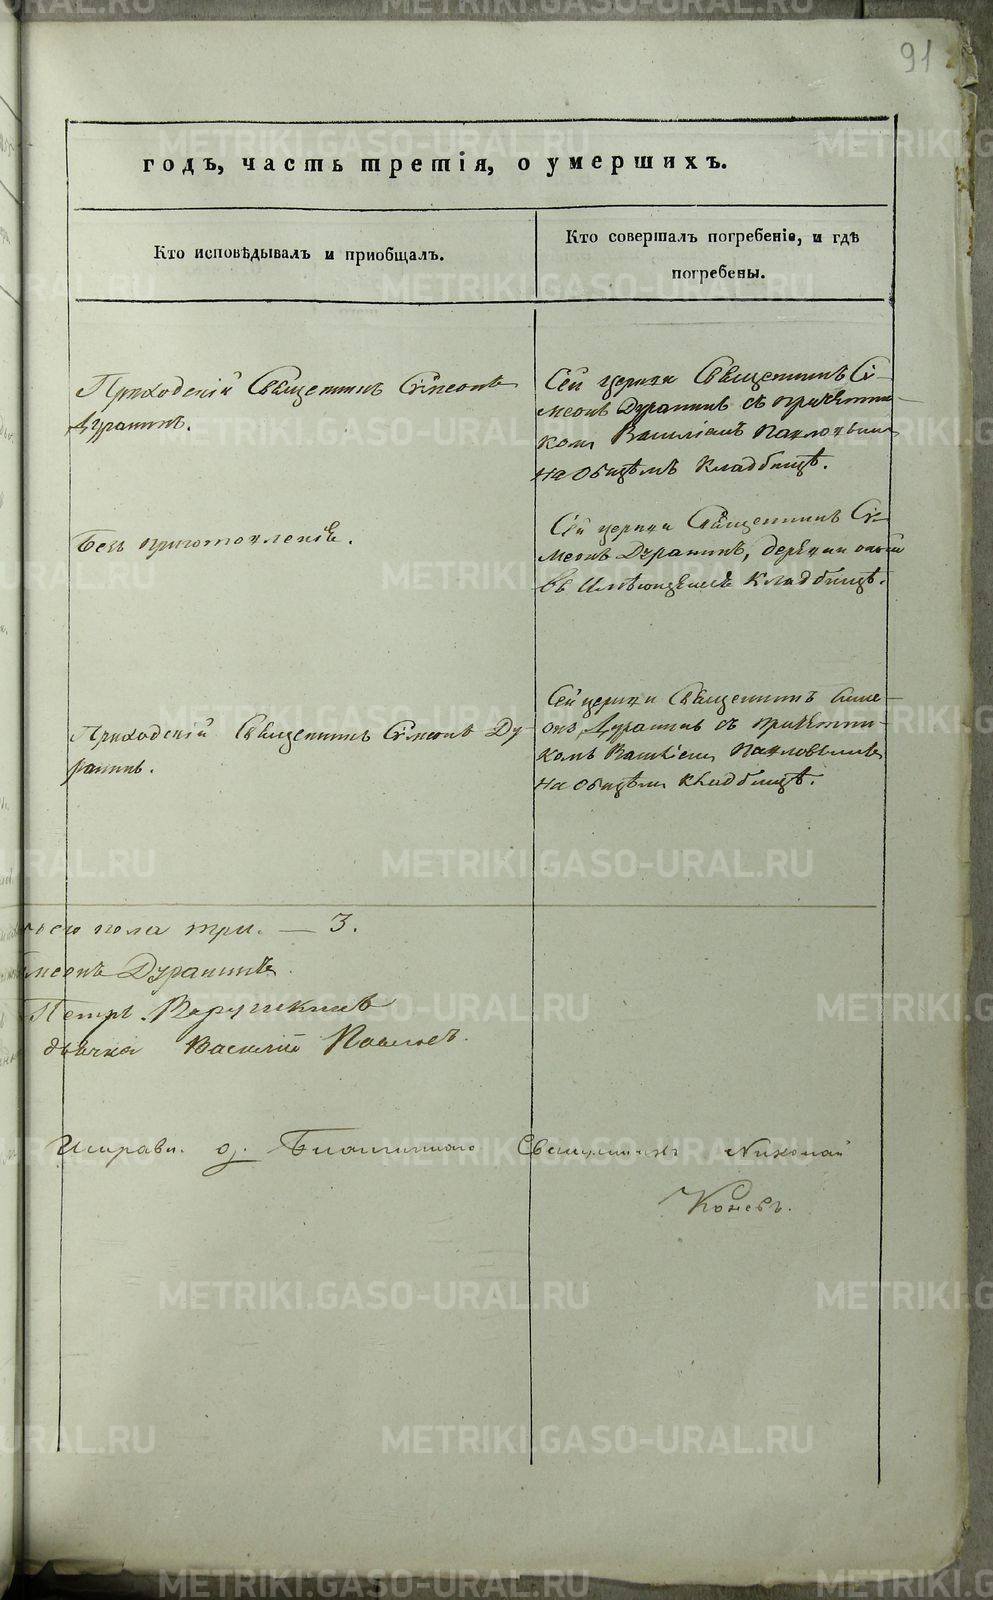 91
годъ, часть третія, о умершихъ.
Кто исповѣдывалъ и приобщалъ.
Кто совершалъ погребеніе, и гдѣ
погребены.
Приходскій Священникъ Симеонъ
Дурашинъ.
Сей церкви Священникъ Си-
меонъ Дурашинъ съ причетни-
комъ Василіемъ Павловымъ
на общемъ кладбищѣ.
Безъ приготовленія.
Сей церкви Священникъ Си-
меонъ Дурашинъ, деревни
въ имѣющемся кладбищѣ.
Приходскій Священникъ Симеонъ Ду-
рашинъ.
Сей церкви Священникъ Симе-
онъ Дурашинъ съ причетни-
комъ Василіемъ Павловымъ
на общемъ кладбищѣ.
пола три. — 3.
Дурашинъ
Петръ
дьячка Василій Павловъ.
Священникъ Николай
Коневъ.
METRIKI.GASO-URAL.RU